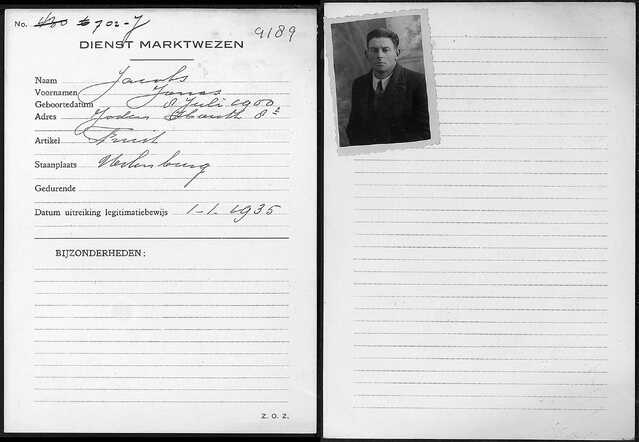 No. 702-J
9189
DIENST MARKTWEZEN
Naam Jacobs
Voornamen Jonas
Geboortedatum 8 Juli 1900
Adres Joden Houttn 8²
Artikel Fruit
Staanplaats Uilenburg
Gedurende
Datum uitreiking legitimatiebewijs 1-1.1935
BIJZONDERHEDEN:
Z. O. Z.